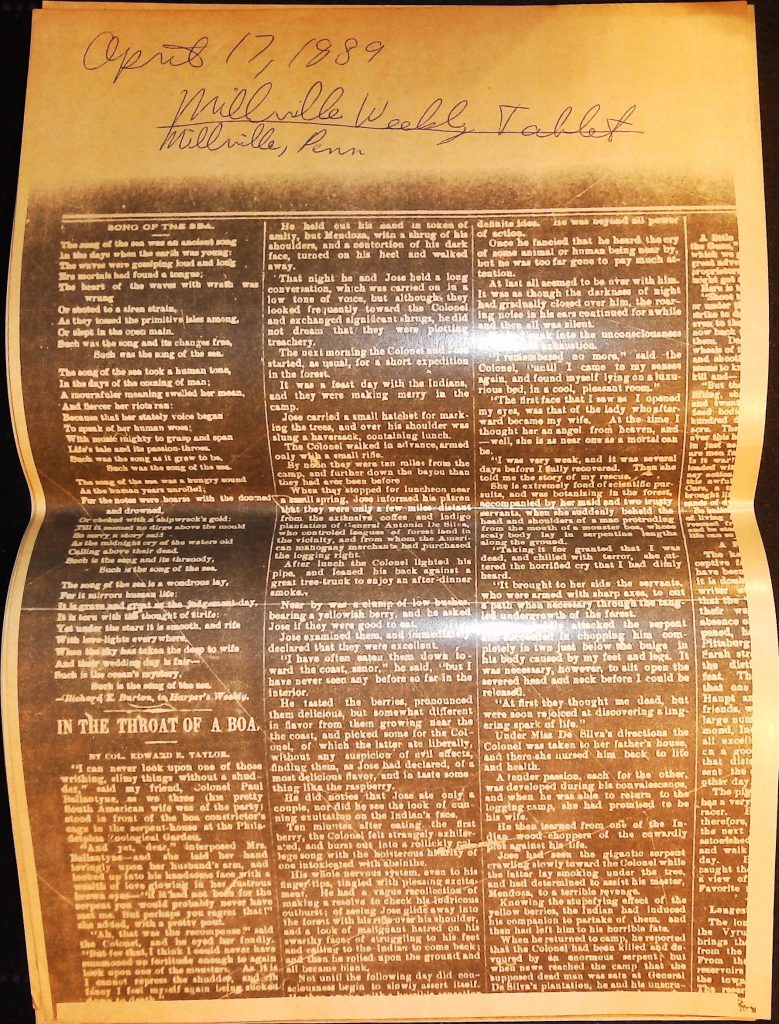 April 17, 1889
Millville Weekly Tablet
Millville, Penn
SONG OF THE SEA.
The song of the sea was an ancient song
In the days when the earth was young;
The waves were gossiping loud and long
Ere mortals had found a tongue;
The heart of the waves with wrath was
wrung
Or soothed to a siren strain,
As they tossed the primitive isles among,
Or slept in the open main.
Such was the song and its changes free,
Such was the song of the sea.
The song of the sea took a human tone,
In the days of the coming of man;
A mournfuler meaning swelled her moan,
And fiercer her riots ran;
Because that her stately voice began
To speak of her human woes;
With music mighty to grasp and span
Life's tale and its passion-throes.
Such was the song as it grew to be,
Such was the song of the sea.
The song of the sea was a hungry sound
As the human years unrolled;
For the notes were hoarse with the doomed
and drowned,
Or choked with a shipwreck's gold:
Till it seemed no dirge above the mould
So sorry a story said
As the midnight cry of the waters old
Calling above their dead.
Such is the song and its threnody,
Such is the song of the sea.
The song of the sea is a wondrous lay,
For it mirrors human life:
It is grave and great as the judgement-day,
It is torn with the thought of strife:
Yet under the stars it is smooth, and rife
With love-lights everywhere,
When the sky has taken the deep to wife
And their wedding day is fair—
Such is the ocean's mystery,
Such is the song of the sea.
—Richard E. Burton, in Harper's Weekly.
IN THE THROAT OF A BOA.
BY COL. EDWARD R. TAYLOR.
"I can never look upon one of those
writhing, slimy things without a shud-
der," said my friend, Colonel Paul
Ballantyne, as we three (his pretty
South American wife was of the party)
stood in front of the boa constrictor's
cage in the serpent-house at the Phila-
delphia Zoological Garden.
"And yet, dear," interposed Mrs.
Ballantyne—and she laid her hand
lovingly upon her husband's arm, and
looked up into his handsome face with a
wealth of love glowing in her lustrous
brown eyes—"if it had not been for the
serpent you would probably never have
met me. But perhaps you regret that!"
she added, with a pretty pout.
"Ah, that was the recompense," said
the Colonel, and he eyed her fondly.
"But for that, I think I could never have
summoned up fortitude enough to again
look upon one of the monsters. As it is
I cannot repress the shudder, and
fancy I feel myself again being sucked
He held out his hand in token of
amity, but Mendoza, with a shrug of his
shoulders, and a contortion of his dark
face, turned on his heel and walked
away.
That night he and Jose held a long
conversation, which was carried on in a
low tone of voice, but although they
looked frequently toward the Colonel
and exchanged significant shrugs, he did
not dream that they were plotting
treachery.
The next morning the Colonel and
started, as usual, for a short expedition
in the forest.
It was a feast day with the Indians,
and they were making merry in the
camp.
Jose carried a small hatchet for mark-
ing the trees, and over his shoulder was
slung a haversack, containing lunch.
The Colonel walked in advance, armed
only with a small rifle.
By noon they were ten miles from the
camp, and further down the bayou than
they had ever been before
When they stopped for luncheon near
a small spring, Jose informed his patron
that they were only a few miles distant
from the extensive coffee and indigo
plantation of General Antonio De Silva,
who controled leagues of forest land in
the vicinity, and from whom the Ameri-
can mahogany merchants had purchased
the logging right.
After lunch the Colonel lighted his
pipe, and leaned his back against a
great tree-trunk to enjoy an after-dinner
smoke.
Near by was a clump of low bushes,
bearing a yellowish berry, and he asked
Jose if they were good to eat.
Jose examined them, and immediately
declared that they were excellent.
"I have often eaten them down to-
ward the coast, senor," he said, "but I
have never seen any before so far in the
interior.
He tasted the berries, pronounced
them delicious, but somewhat different
in flavor from them growing near the
coast, and picked some for the Col-
onel, of which the latter ate liberally,
without any suspicion of evil effects,
finding them, as Jose had declared, of a
most delicious flavor, and in taste some
thing like the raspberry.
He did notice that Jose ate only a
couple, nor did he see the look of cun-
ning exultation on the Indian's face.
Ten minutes after eating the first
berry, the Colonel felt strangely exhiler-
ated, and burst out into a rollicking col-
lege song with the boisterous hilarity of
one intoxicated with absinth.
His whole nervous system, even to his
finger-tips, tingled with pleasing excite-
ment. He had a vague recollection of
making a resolve to check his ludicrous
outburst; of seeing Jose glide away into
the forest with his rifle over his shoulder
and a look of malignant hatred on his
swarthy face; of struggling to his feet
and calling to the Indian to come back
and then he rolled upon the ground and
all became blank.
Not until the following day did con-
sciousness begin to slowly assert itself.
definite idea. He was beyond all power
of action.
Once he fancied that he heard the cry
of some animal or human being near by,
but he was too far gone to pay much at-
tention.
At last all seemed to be over with him.
It was as though the darkness of night
had gradually closed over him, the roar-
ing noise in his ears continued for awhile
and then all was silent.
sunk into the unconsciousness
exhaustion.
"I remembered no more," said the
Colonel, "until I came to my senses
again, and found myself lying on a luxu-
rious bed, in a cool, pleasant room."
"The first face that I saw as I opened
my eyes, was that of the lady who after-
ward became my wife. At the time I
thought her an angel from heaven, and
—well, she is as near one as a mortal can
be.
"I was very weak, and it was several
days before I fully recovered. Then she
told me the story of my rescue.
She is extremely fond of scientific pur-
suits, and was botanizing in the forest,
accompanied by her maid and two trusty
servants, when she suddenly beheld the
head and shoulders of a man protruding
from the mouth of a monster boa, whose
scaly body lay in serpentine lengths
along the ground.
"Taking it for granted that I was
dead, and chilled with terror, she ut-
tered the horrified cry that I had dimly
heard.
"It brought to her side the servants,
who were armed with sharp axes, to cut
a path when necessary through the tang-
led undergrowth of the forest.
attacked the serpent
and succeeded in chopping him com-
pletely in two just below the bulge in
his body caused by my feet and legs. I
was necessary, however, to slit open the
severed head and neck before I could be
released.
"At first they thought me dead, but
were soon rejoiced at discovering a ling-
ering spark of life."
Under Miss De Silva's directions the
Colonel was taken to her father's house,
and there she nursed him back to life
and health.
A tender passion, each for the other,
was developed during his convalescence,
and when he was able to return to the
logging camp, she had promised to be
his wife.
He then learned from one of the In-
dian wood-choppers of the cowardly
plot against his life.
Jose had seen the gigantic serpent
crawling slowly toward the Colonel while
the latter lay smoking under the tree,
and had determined to assist his master,
Mendoza, to a terrible revenge.
Knowing the stupefying effect of the
yellow berries, the Indian had induced
his companion to partake of them, and
then had left him to his horrible fate.
When he returned to camp, he reported
that the Colonel had been killed and de-
voured by an enormous serpent; but
when news reached the camp that the
supposed dead man was safe at General
De Silva's plantation, he and his unscru-